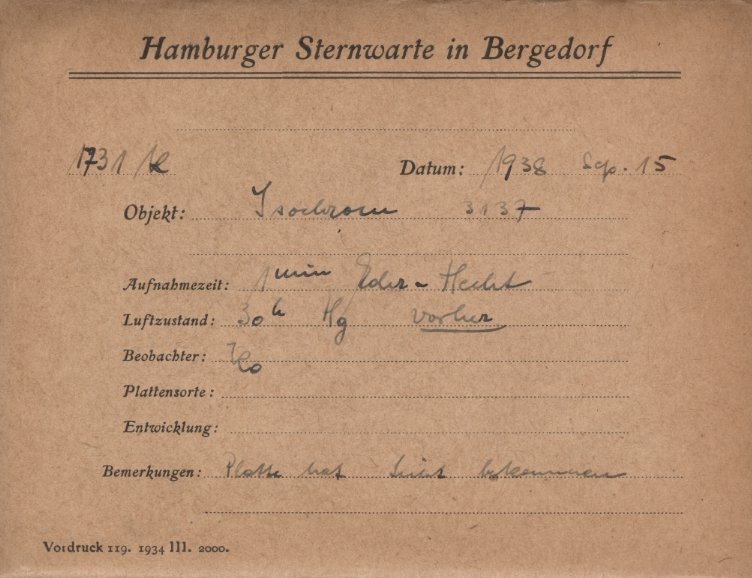 Hamburger Sternwarte in Bergedorf
1731 Datum: 1938 Sep. 15
Objekt: Isochrom 3137
Aufnahmezeit: 1 min Eder-Hecht
Luftzustand: 30h Hg vorher
Beobachter:
Plattensorte:
Entwicklung:
Bemerkungen: Platte hat Licht bekommen
Vordruck 119. 1934 III. 2000.